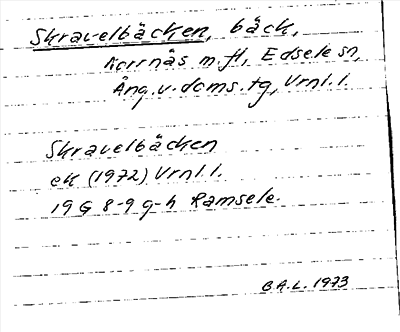 Skravelbäcken, bäck,
Kornnäs m.fl, Edsele sn,
Ång.v.doms.tg, Vrnl.l.
Skravelbäcken
ek (1972) Vrnl.l.
19G 8-9 g-h Ramsele.
B.A.L. 1973